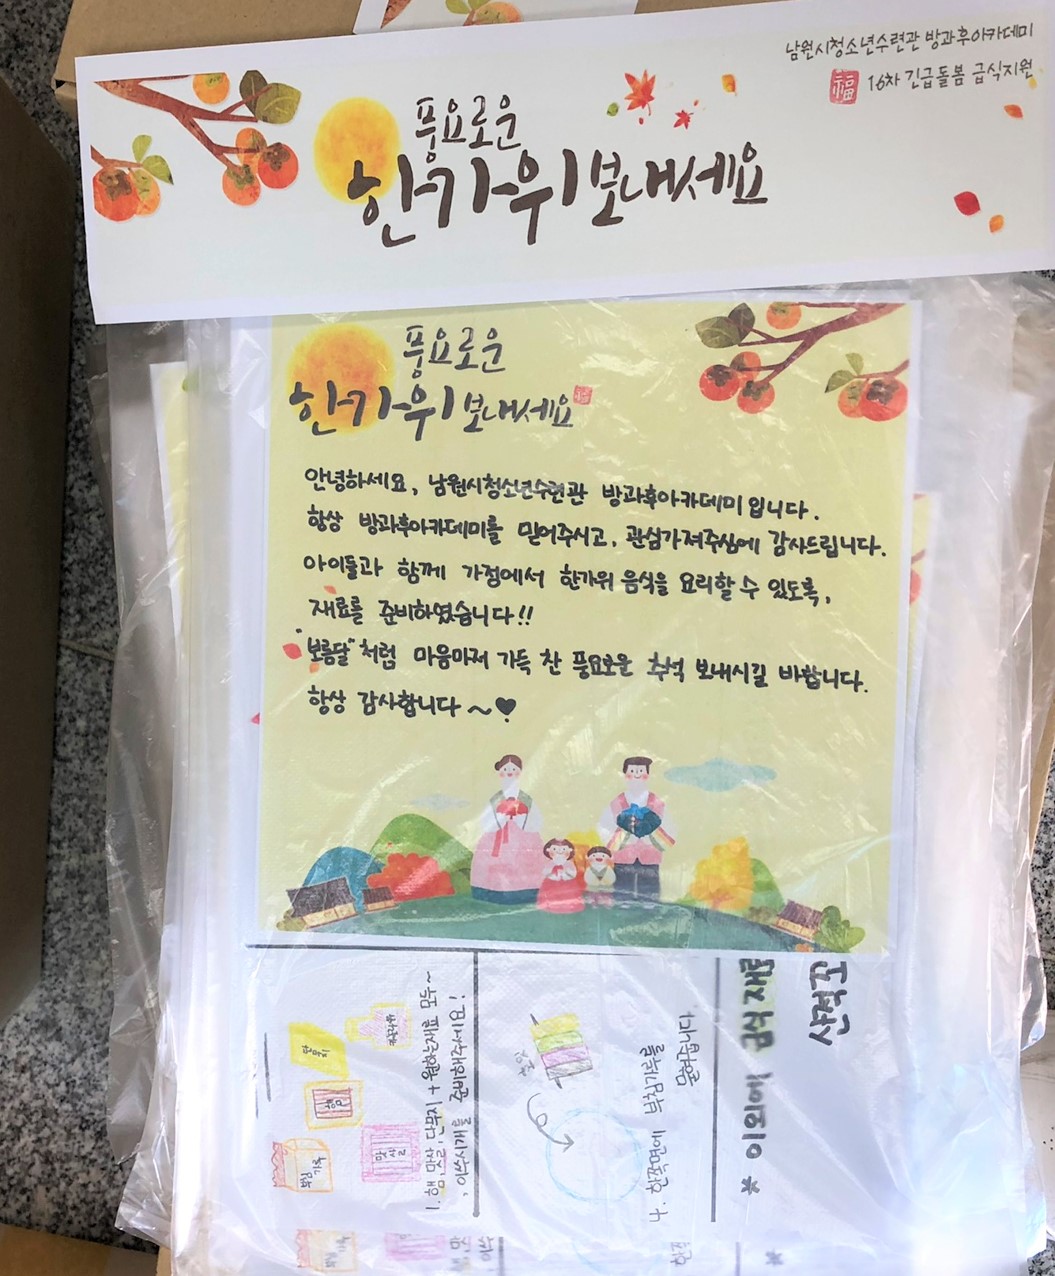 남원시청소년수련관 방과후아카데미
福 16차 긴급돌봄 급식지원
풍요로운
한가위 보내세요
풍요로운
한가위 보내세요
안녕하세요, 남원시청소년수련관 방과후아카데미입니다.
항상 방과후아카데미를 믿어주시고, 관심가져주심에 감사드립니다.
아이들과 함께 가정에서 한가위 음식을 요리할 수 있도록,
재료를 준비하였습니다!!
"보름달"처럼 마음마저 가득 찬 풍요로운 추석 보내시길 바랍니다.
항상 감사합니다~♥
산적꼬
* 이외에 금식재료
4. 한쪽면에 부침가루를
묻혀줍니다
1. 햄,맛살,단무지 + 원하는재료 모두~
, 이쑤시개를 준비해주세요!
단무지
햄
맛살
부침가루